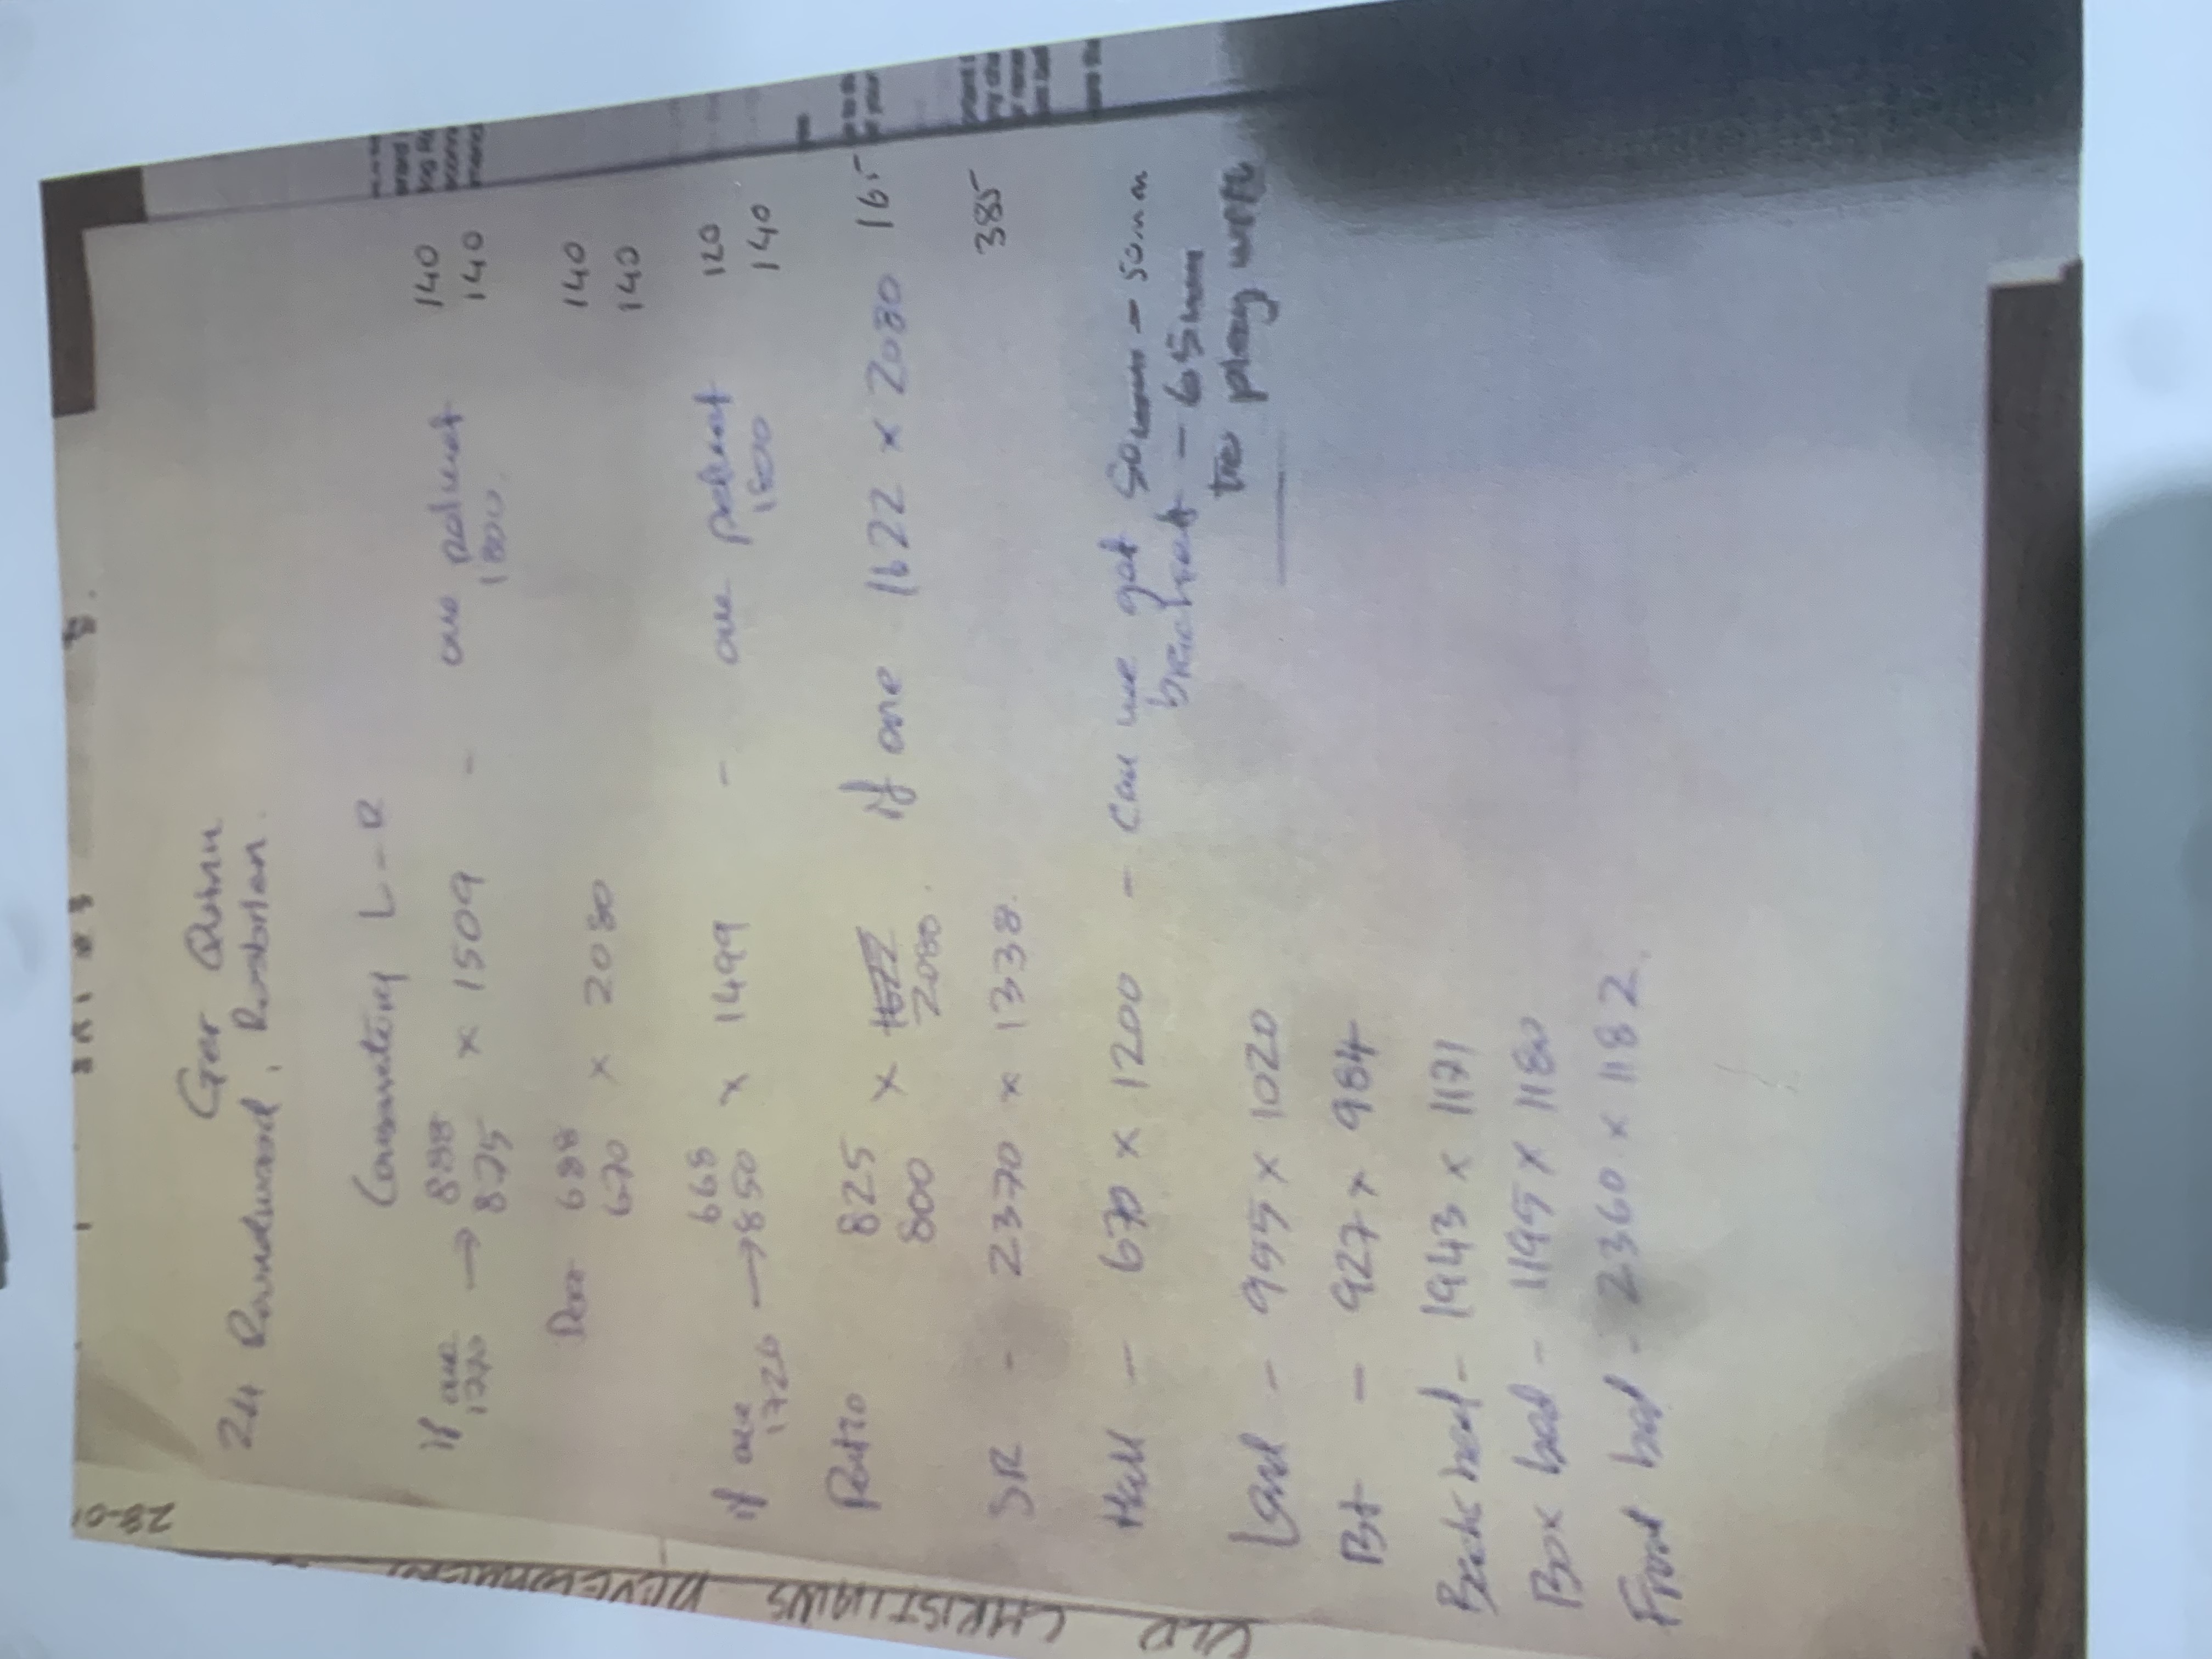 Ger Quinn
24 Roundwood, Rossbrien.
Conservatory L-R
if one → 888 × 1509 - one 140
1770 875 1800. 140
Door 688 × 2080 140
670 140
668 × 1499 - one 120
if one → 850 1800 140
1720
Patio 825 × 1622 if one 1622 × 2080 165
800 2080.
SR - 2370 × 1338. 385
Hall - 670 × 1200 - can we get 50mm - 50mm
bracket - 65mm
to play with
Land - 955 × 1020
Bt - 927 × 984
Back bed - 1943 × 1171
Box bed - 1195 × 1180
Front bed - 2360 × 1182.
28-01
OLD CHRISTIANS